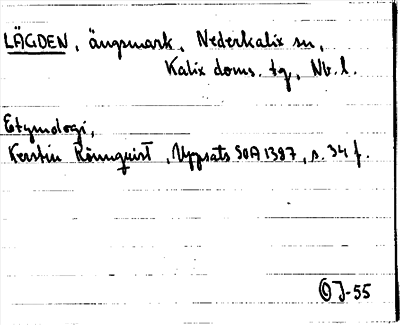 LÄGDEN, ängsmark, Nederkalix sn,
Kalix doms. tg, Nb. l.
Etymologi,
Kerstin Rönnquist, Uppsats SOA 1387, s. 34 f.
J-55